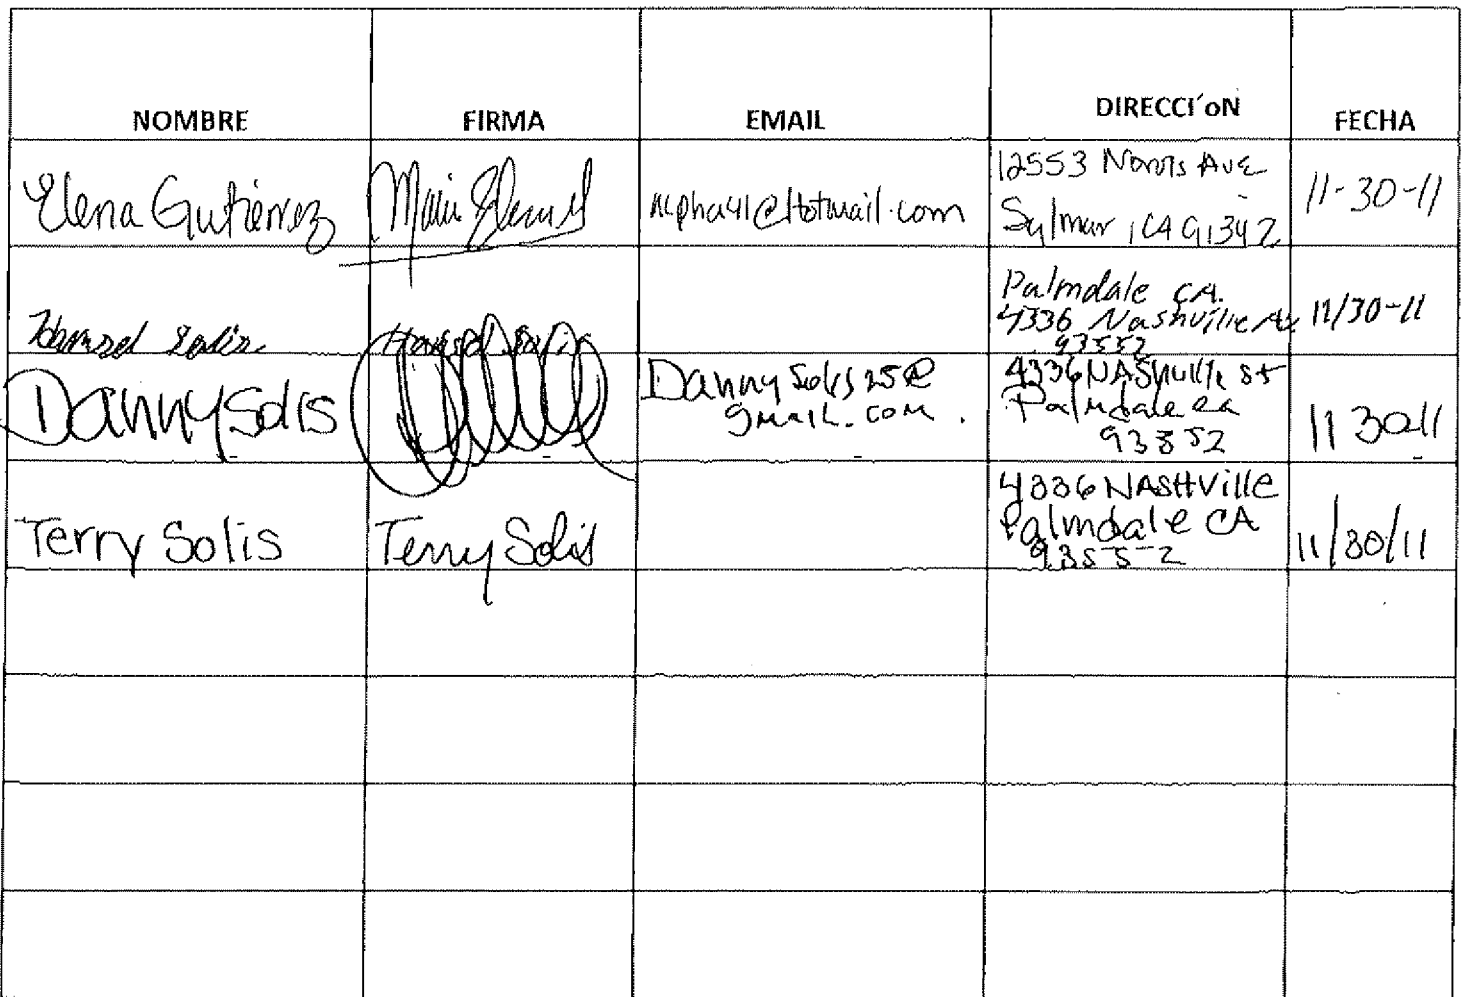 NOMBRE FIRMA EMAIL DIRECCI´oN FECHA
Elena Gutiérrez
mpha41@Hotmail.com
12553 Norris Ave
Sylmar, CA 91342
11-30-11
Solis
Palmdale CA.
4336 Nashville Av
93552
11/30-11
Danny Solis
Danny Solis 25@
gmail.com.
4336 NAShville st
Palmdale ca
93552
11 30-11
Terry Solis
Terry Solis
4336 NASHVille
Palmdale CA
93552
11/30/11